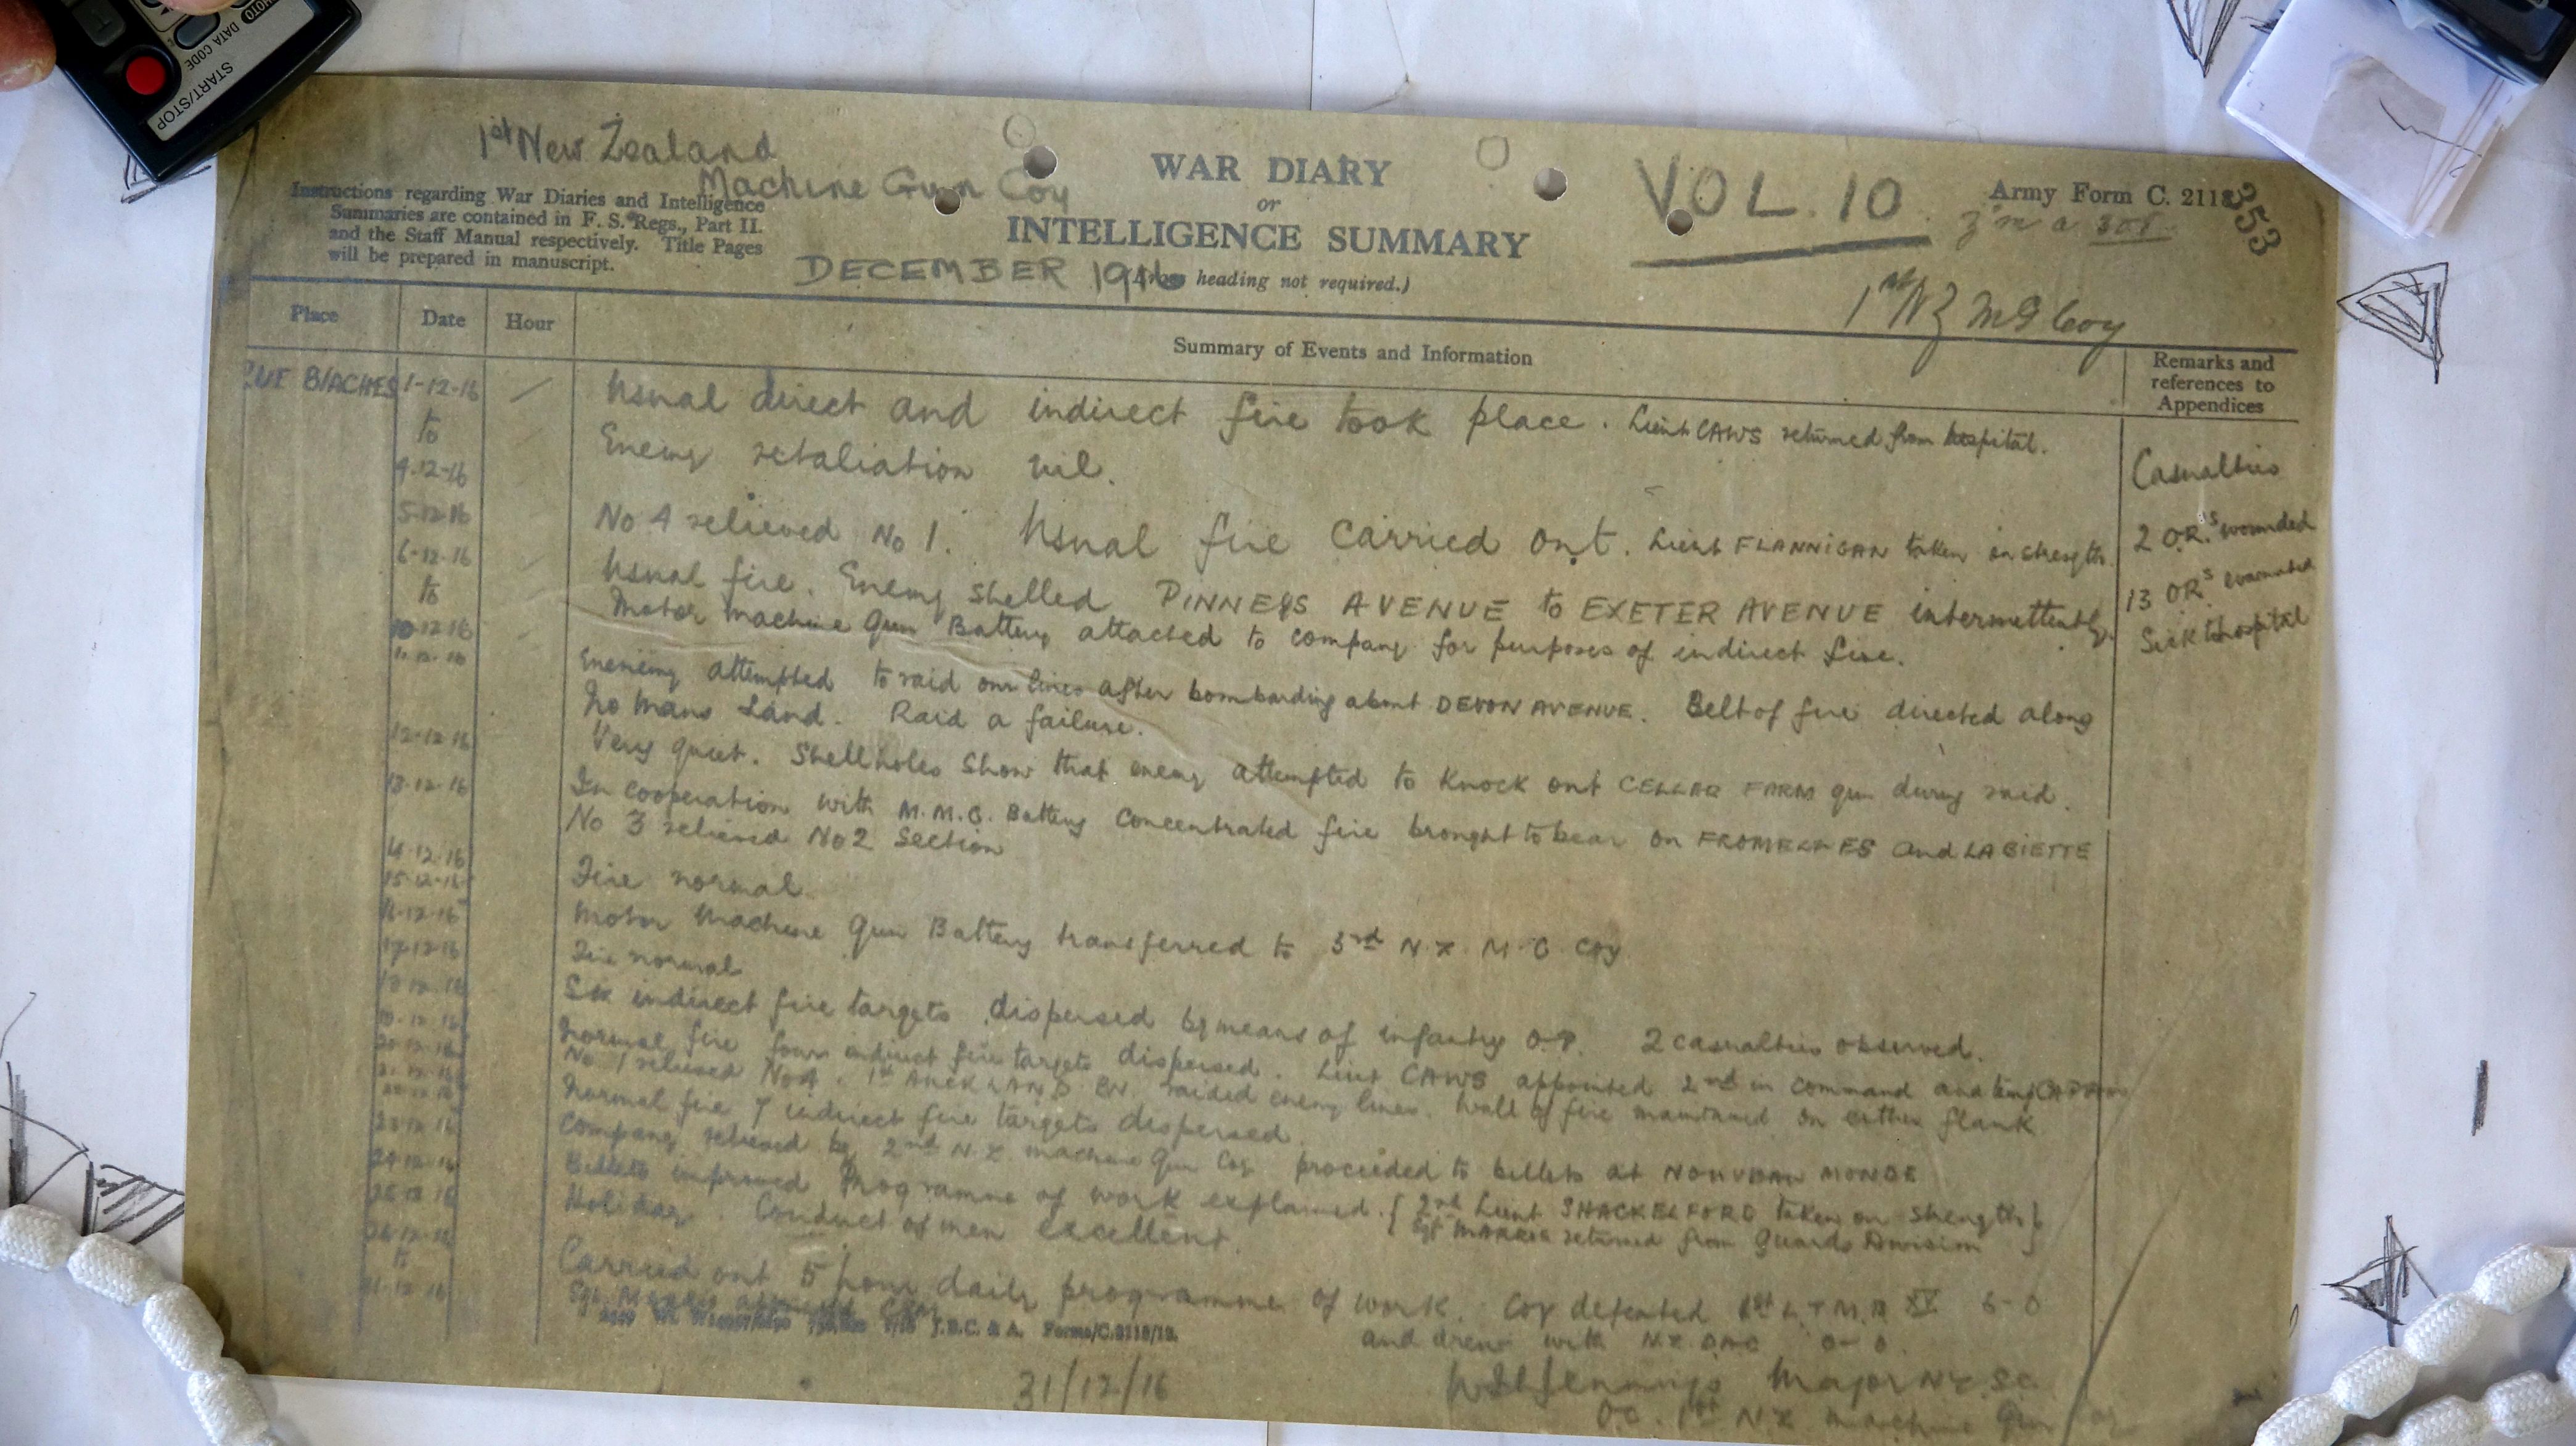 START/STOP
DATA CODE
PHOTO
1st New Zealand
Machine Gun Coy
Instructions regarding War Diaries and Intelligence
Summaries are contained in F. S. Regs., Part II.
and the Staff Manual respectively. Title Pages
will be prepared in manuscript.
WAR DIARY
or
INTELLIGENCE SUMMARY
DECEMBER 1916
heading not required.)
VOL. 10
Army Form C. 2118
353
1st NZ MG Coy
Place Date Hour Summary of Events and Information Remarks and references to Appendices
RUE BIACHES 1-12-16 Usual direct and indirect fire took place. Lieut CAWS returned from hospital.
to Enemy retaliation nil.
4.12-16
Casualties
5-12-16 No 4 relieved No 1. Usual fire carried out. Lieut FLANNIGAN taken on strength.
2 O.R.'s wounded
6-12-16 Usual fire. Enemy shelled PINNEYS AVENUE to EXETER AVENUE intermittently.
13 OR's evacuated
to Motor Machine Gun Battery attached to company for purposes of indirect fire.
Sick to hospital
10-12-16
Enemy attempted to raid our lines after bombarding about DEVON AVENUE. Belt of fire directed along
No Mans Land. Raid a failure.
12-12-16 Very quiet. Shellholes show that enemy attempted to knock out CELLAR FARM gun during raid.
13-12-16 In cooperation with M.M.G. Battery concentrated fire brought to bear on FROMELLES and LA BIETTE
No 3 relieved No 2 Section
14-12-16 Fire normal.
15-12-16
16-12-16 Motor Machine Gun Battery transferred to 3rd N.Z. M.G. Coy
17-12-16 Fire normal
18-12-16 Six indirect fire targets dispersed by means of infantry O.P. 2 casualties observed.
19-12-16 Normal fire four indirect fire targets dispersed. Lieut CAWS appointed 2nd in command and
20-12-16 No 1 relieved No 4. 1st AUCKLAND BN. raided enemy lines. Wall of fire maintained on either flank
21-12-16 Normal fire 7 indirect fire targets dispersed.
Company relieved by 2nd N.Z. Machine Gun Coy proceeded to billets at NOUVEAU MONDE
23-12-16 Billets improved Programme of work explained. { 2nd Lieut SHACKELFORD taken on strength }
24-12-16 Holiday. Conduct of men excellent. { Sgt returned from Guards Division }
25-12-16
26-12-16 Carried out 5 hour daily programme of work. Coy defeated 1st L.T.M.B XV 6-0
to and drew with N.Z. 0-0.
31-12-16
J.B.C. & A. Forms/C.2118/12.
31/12/16
Jennings Major NZSC
O.C. 1st N.Z. Machine Gun Coy